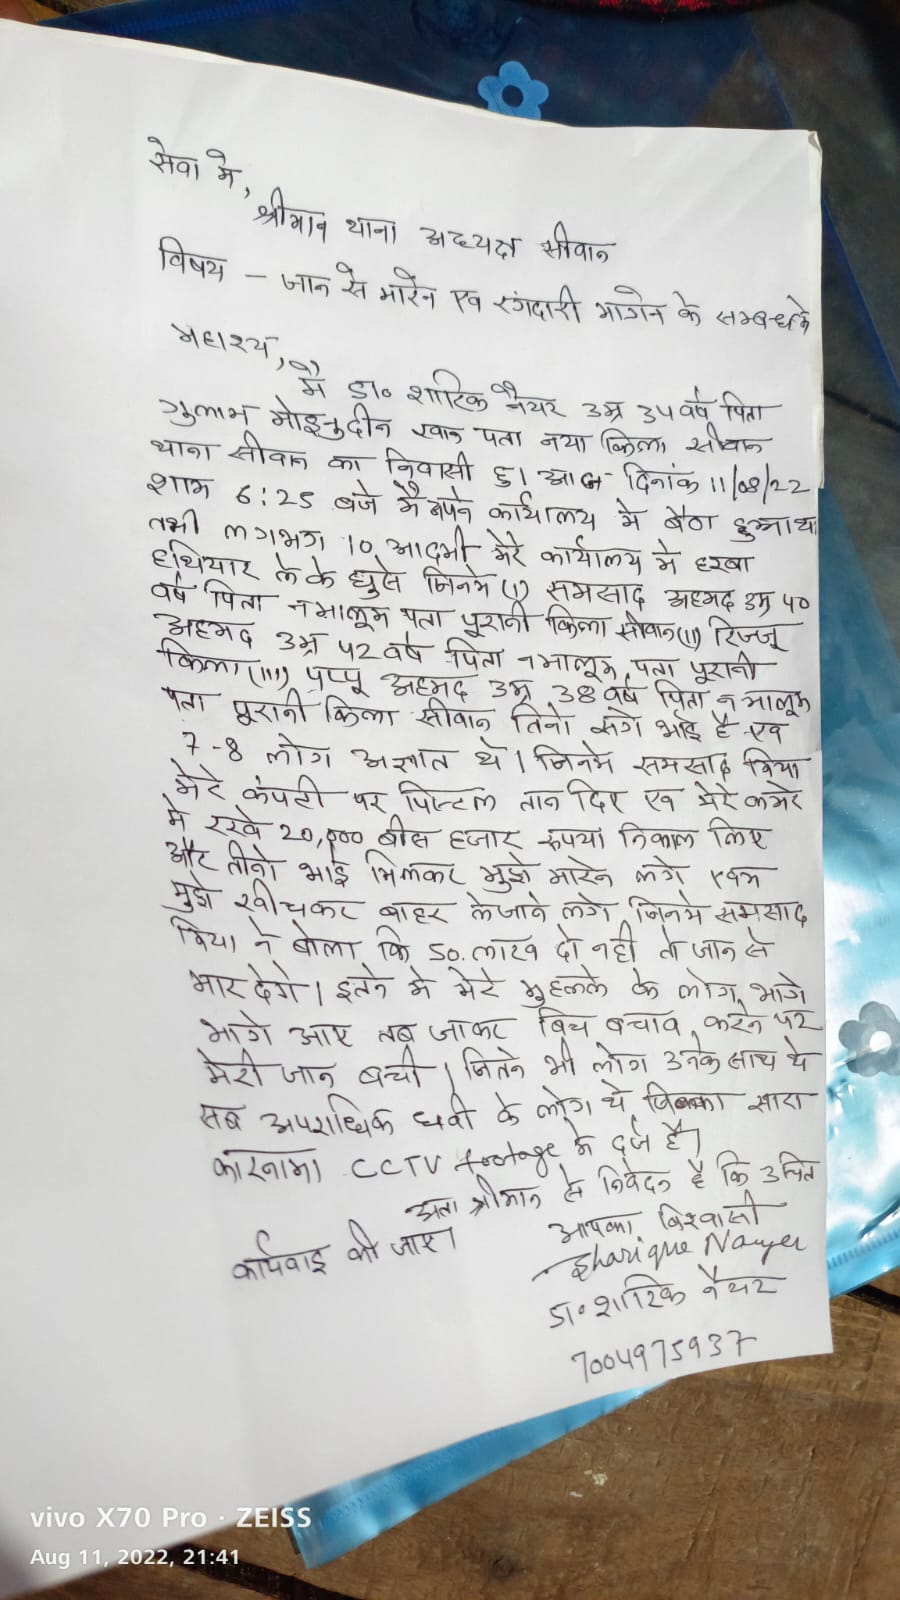 सेवा मे,
श्रीमान थाना अध्यक्ष सीवान
विषय - जान से मारने एव रंगदारी मांगने के सम्बन्ध के
महाश्य,
मै डा० शारिक नैयर उम्र 34 वर्ष पिता
गुलाम मोइनुदीन खान पता नया किला सीवान
थाना सीवान का निवासी हु। आज दिनांक 11/08/22
शाम 6:25 बजे मै अपने कार्यालय मे बैठा हुआ था
तभी लगभग 10 आदमी मेरे कार्यालय मे हरबा
हथियार ले के घुसे जिनमे (I) समसाद अहमद उम्र 40
वर्ष पिता नमालूम पता पूरानी किला सीवान (II) रिज्जू
अहमद उम्र 42 वर्ष पिता नमालूम पता पूरानी
किला (III) पप्पू अहमद उम्र 38 वर्ष पिता नमालूम
पता पूरानी किला सीवान तिनो सगे भाई है एव
7-8 लोग अज्ञात थे। जिनमे समसाद मिया
मेरे कंपटी पर पिस्टल तान दिए एव मेरे कमरे
मे रखे 20,000 बीस हजार रुपया निकाल लिए
और तीनो भाई मिलकर मुझे मारने लगे एवम
मुझे खीचकर बाहर लेजाने लगे जिनमे समसाद
मिया ने बोला कि 50. लाख दो नही तो जान से
मार देगे। इतने मे मेरे मुहल्ले के लोग भागे
भागे आए तब जाकर बिच बचाव करने पर
मेरी जान बची। जितने भी लोग उनके साथ थे
सब अपराधिक छवी के लोग थे जिसका सारा
कारनामा CCTV footage मे दर्ज है।
अतः श्रीमान से निवेदन है कि उचित
कार्यवाइ की जाए।
आपका विश्वासी
Sharique Nayyer
डा० शारिक नैयर
7004975937
vivo X70 Pro · ZEISS
Aug 11, 2022, 21:41